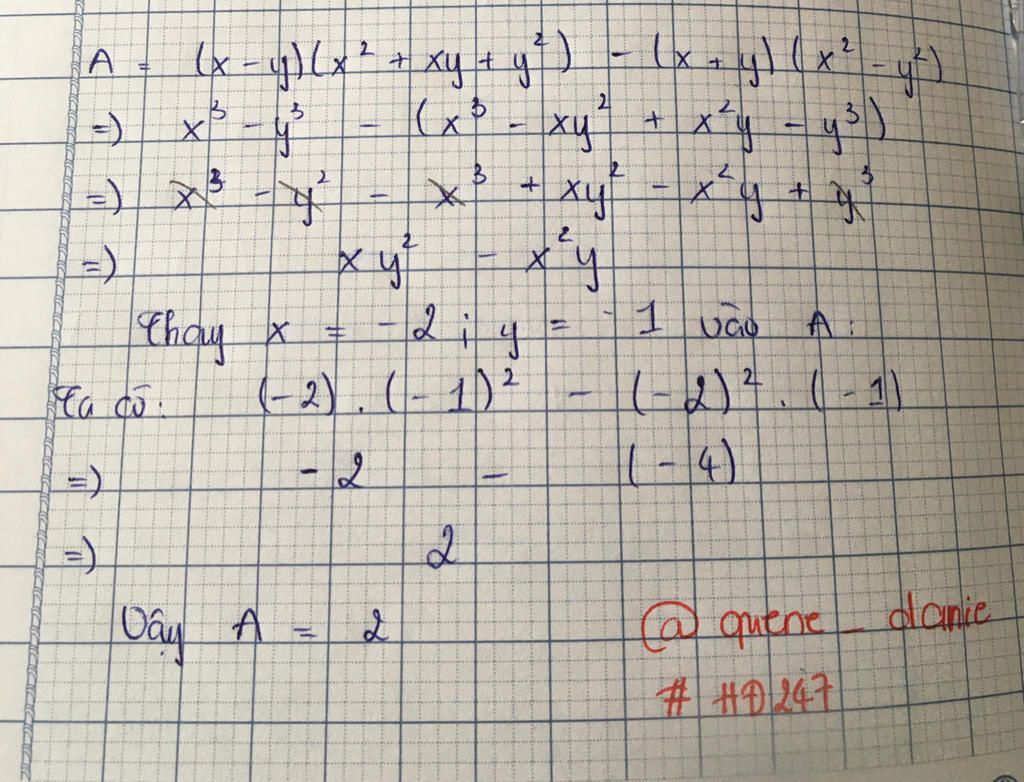 A = (x - y)(x² + xy + y²) - (x + y)(x² - y²)
=) x³ - y³ - (x³ - xy² + x²y - y³)
=) x³ - y² - x³ + xy² - x²y + y³
=) xy² - x²y
Thay x = -2 ; y = -1 vào A:
Ta có: (-2) . (-1)² - (-2)² . (-1)
=) -2 - (-4)
=) 2
Vậy A = 2
@ quene _ danie
# HĐ247